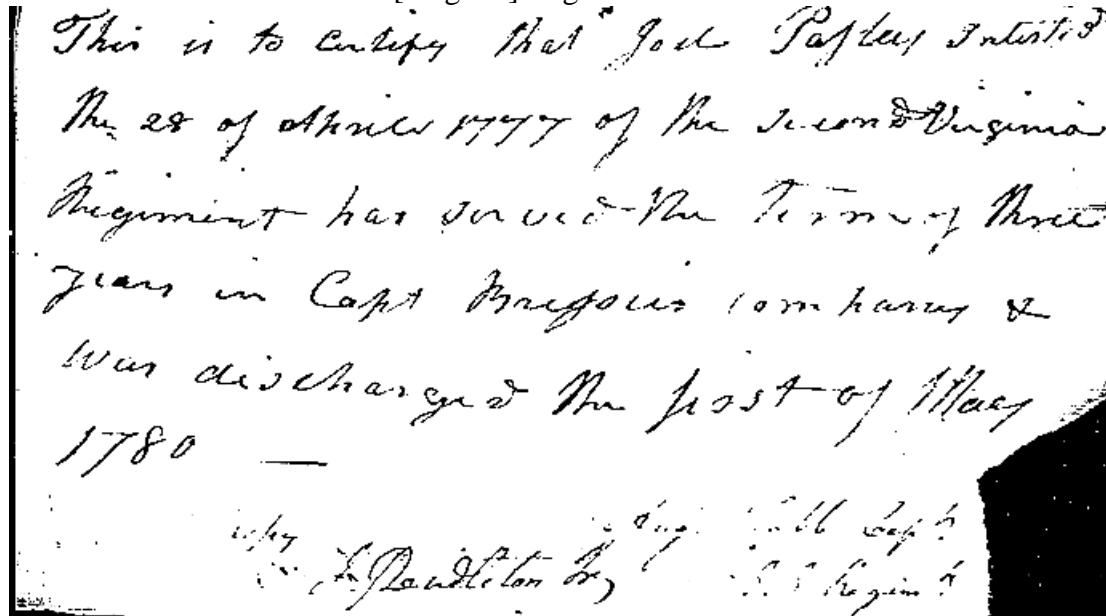 This is to certify that Joel Pasley Intistd
the 28 of Aprile 1777 of the second Virginia
Regiment has served the Term of three
years in Capt company &
was discharged the first of May
1780 —
Copy
Pendleton Jr
Regimt